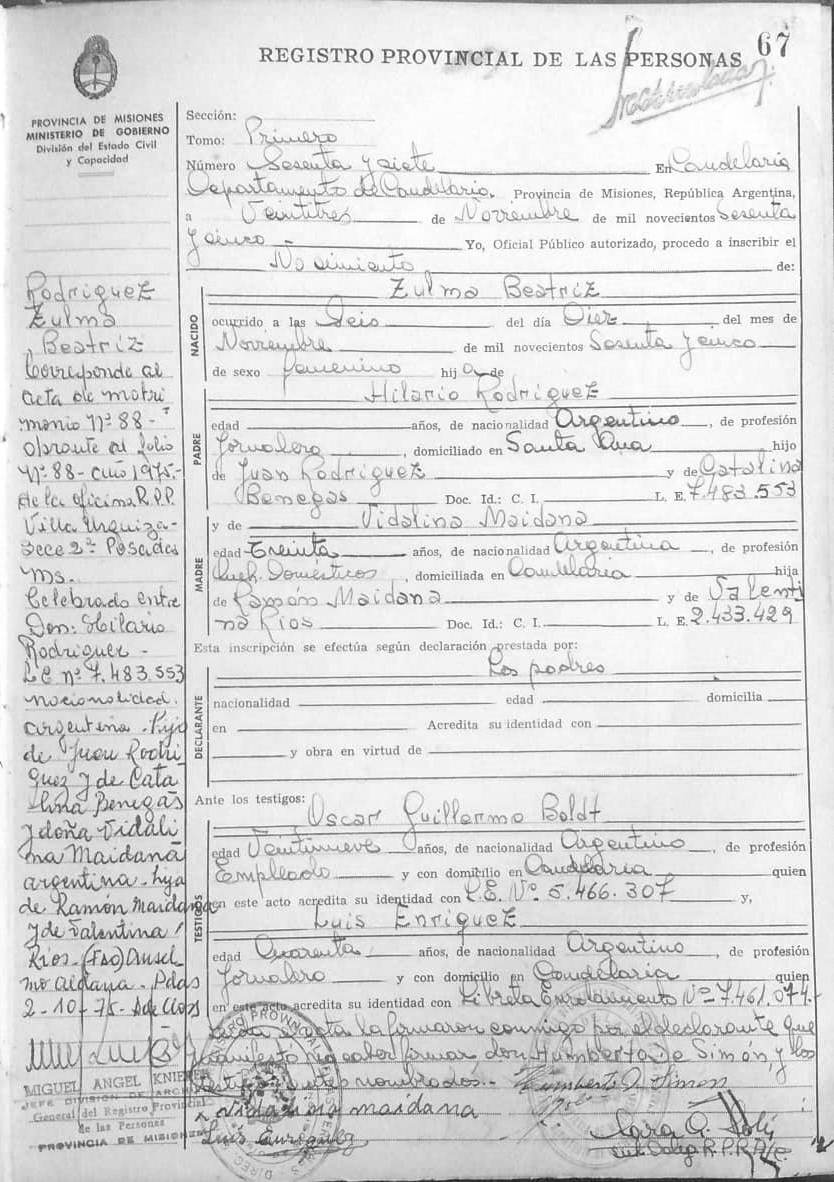 67
REGISTRO PROVINCIAL DE LAS PERSONAS
PROVINCIA DE MISIONES
MINISTERIO DE GOBIERNO
División del Estado Civil
y Capacidad
Sección:
Tomo: Primero
Número Sesenta y siete En Candelaria
Departamento de Candelaria, Provincia de Misiones, República Argentina,
a Veintitres de Noviembre de mil novecientos Sesenta
y cinco Yo, Oficial Público autorizado, procedo a inscribir el
Nacimiento de:
NACIDO
Zulma Beatriz
ocurrido a las Seis del día Diez del mes de
Noviembre de mil novecientos Sesenta y cinco
de sexo femenino hija de
PADRE
Hilario Rodriguez
edad años, de nacionalidad Argentino, de profesión
Jornalero, domiciliado en Santa Ana hijo
de Juan Rodriguez y de Catalina
Benegas Doc. Id.: C. I. L. E. 7.483.553
MADRE
y de Vidalina Maidana
edad Treinta años, de nacionalidad Argentina, de profesión
Queh. Domésticos, domiciliada en Candelaria hija
de Ramón Maidana y de Valenti
na Rios Doc. Id.: C. I. L. E. 2.433.429
Esta inscripción se efectúa según declaración prestada por:
Los padres
DECLARANTE
nacionalidad edad domicilia
en Acredita su identidad con
y obra en virtud de
Ante los testigos:
Oscar Guillermo Boldt
TESTIGOS
edad Veintinueve años, de nacionalidad Argentino, de profesión
Empleado y con domicilio en Candelaria quien
en este acto acredita su identidad con L.E. Nº 5.466.307 y,
Luis Enriquez
edad Cuarenta años, de nacionalidad Argentino, de profesión
Jornalero y con domicilio en Candelaria quien
en este acto acredita su identidad con Libreta Enrolamiento Nº 7.461.074.-
acta la firmaron conmigo por el declarante que
manifestó no saber firmar don Humberto De Simón y los
testigos antes nombrados.-
Humberto D. Simon
Vidalina maidana
Luis Enriquez
Rodriguez
Zulma
Beatriz
Corresponde al
acta de matri
monio Nº 88-
obrante al folio
Nº 88- año 1975.-
de la oficina R.P.P.
Villa Urquiza-
Secc 2ª Posadas
Ms.
Celebrado entre
Don: Hilario
Rodriguez-
L E nº 7.483.553
nacionalidad.
argentina. hijo
de Juan Rodri
guez y de Cata
lina Benegas
y doña Vidali
na Maidana
argentina. hija
de Ramón Maidana
y de Valentina
Rios.-(Fdo) Ansel
mo Aldana. Pdas
2-10-75-
MIGUEL ANGEL
JEFE DIVISION DE
General del Registro Provincial
de las Personas
PROVINCIA DE MISIONES